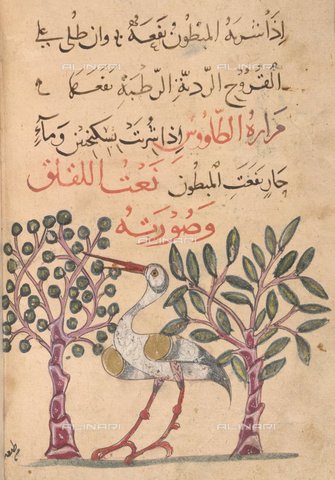 اذا شربه المبطون نفعه وان طلى على
القروح الردية الرطبة نفعها
مرارة الطاووس اذا شربت بسكنجبين وماء
حار نفعت المبطون نعت اللقلق
وصورته
ALINARI
ALINARI
ALINARI
ALINARI